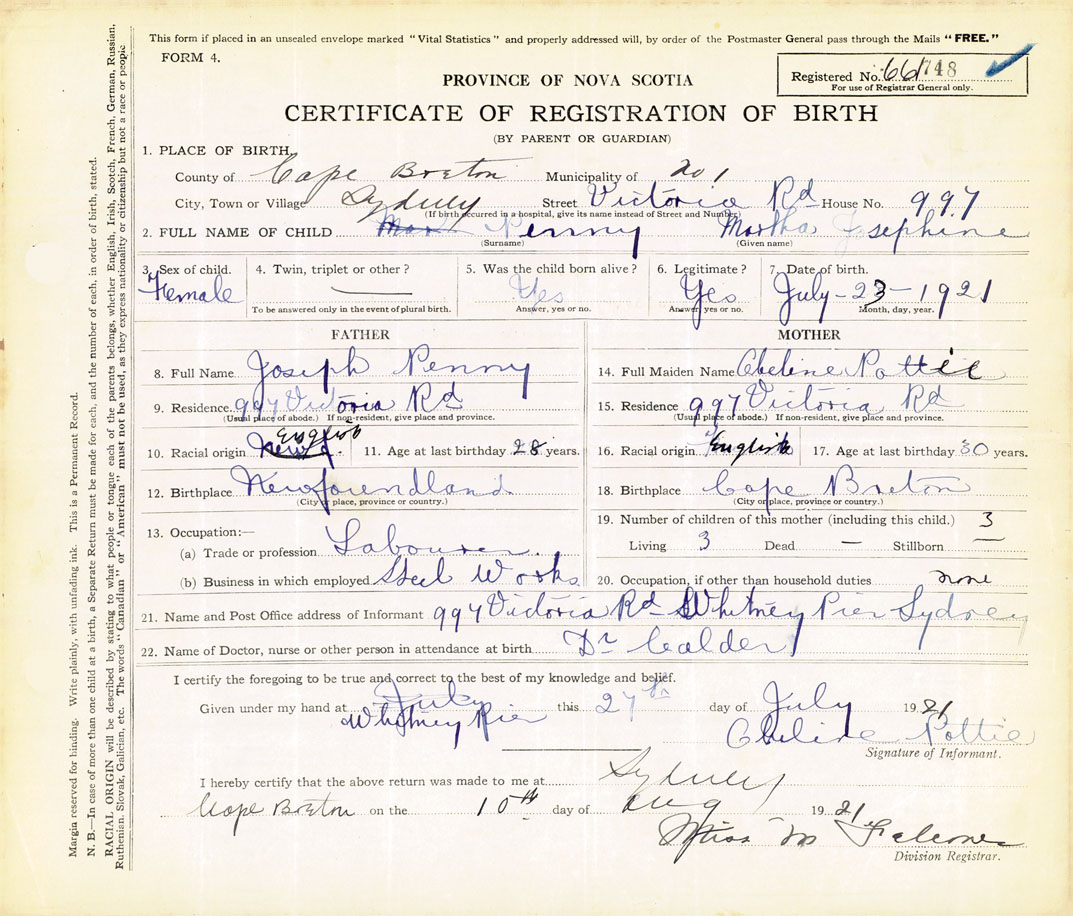 This form if placed in an unsealed envelope marked "Vital Statistics" and properly addressed will, by order of the Postmaster General pass through the Mails "FREE."
FORM 4.
Registered No. 66 748
For use of Registrar General only.
PROVINCE OF NOVA SCOTIA
CERTIFICATE OF REGISTRATION OF BIRTH
(BY PARENT OR GUARDIAN)
1. PLACE OF BIRTH
County of Cape Breton Municipality of no 1
City, Town or Village Sydney Street Victoria Rd House No. 997
(If birth occurred in a hospital, give its name instead of Street and Number)
2. FULL NAME OF CHILD Penny Martha Josephine
(Surname) (Given name)
3. Sex of child. 4. Twin, triplet or other? 5. Was the child born alive? 6. Legitimate? 7. Date of birth.
Female — Yes Yes July-23-1921
To be answered only in the event of plural birth. Answer, yes or no. Answer, yes or no. Month, day, year.
FATHER
8. Full Name Joseph Penny
9. Residence 997 Victoria Rd
(Usual place of abode.) If non-resident, give place and province.
10. Racial origin English 11. Age at last birthday 28 years.
12. Birthplace Newfoundland
(City or place, province or country.)
13. Occupation:—
(a) Trade or profession Labourer
(b) Business in which employed Steel Works
MOTHER
14. Full Maiden Name Abeline Pottie
15. Residence 997 Victoria Rd
(Usual place of abode.) If non-resident, give place and province.
16. Racial origin English 17. Age at last birthday 30 years.
18. Birthplace Cape Breton
(City or place, province or country.)
19. Number of children of this mother (including this child.) 3
Living 3 Dead — Stillborn —
20. Occupation, if other than household duties none
21. Name and Post Office address of Informant 997 Victoria Rd Whitney Pier Sydney
22. Name of Doctor, nurse or other person in attendance at birth Dr Calder
I certify the foregoing to be true and correct to the best of my knowledge and belief.
Given under my hand at Whitney Pier this 27th day of July 1921
Abeline Pottie
Signature of Informant.
I hereby certify that the above return was made to me at Sydney
Cape Breton on the 10th day of Aug 1921
Miss M Falconer
Division Registrar.
Margin reserved for binding. Write plainly, with unfading ink. This is a Permanent Record.
N. B.—In case of more than one child at a birth, a Separate Return must be made for each, and the number of each, in order of birth, stated.
RACIAL ORIGIN will be described by stating to what people or tongue each of the parents belongs, whether English, Irish, Scotch, French, German, Russian,
Ruthenian, Slovak, Galician, etc. The words "Canadian" or "American" must not be used, as they express nationality or citizenship but not a race or people